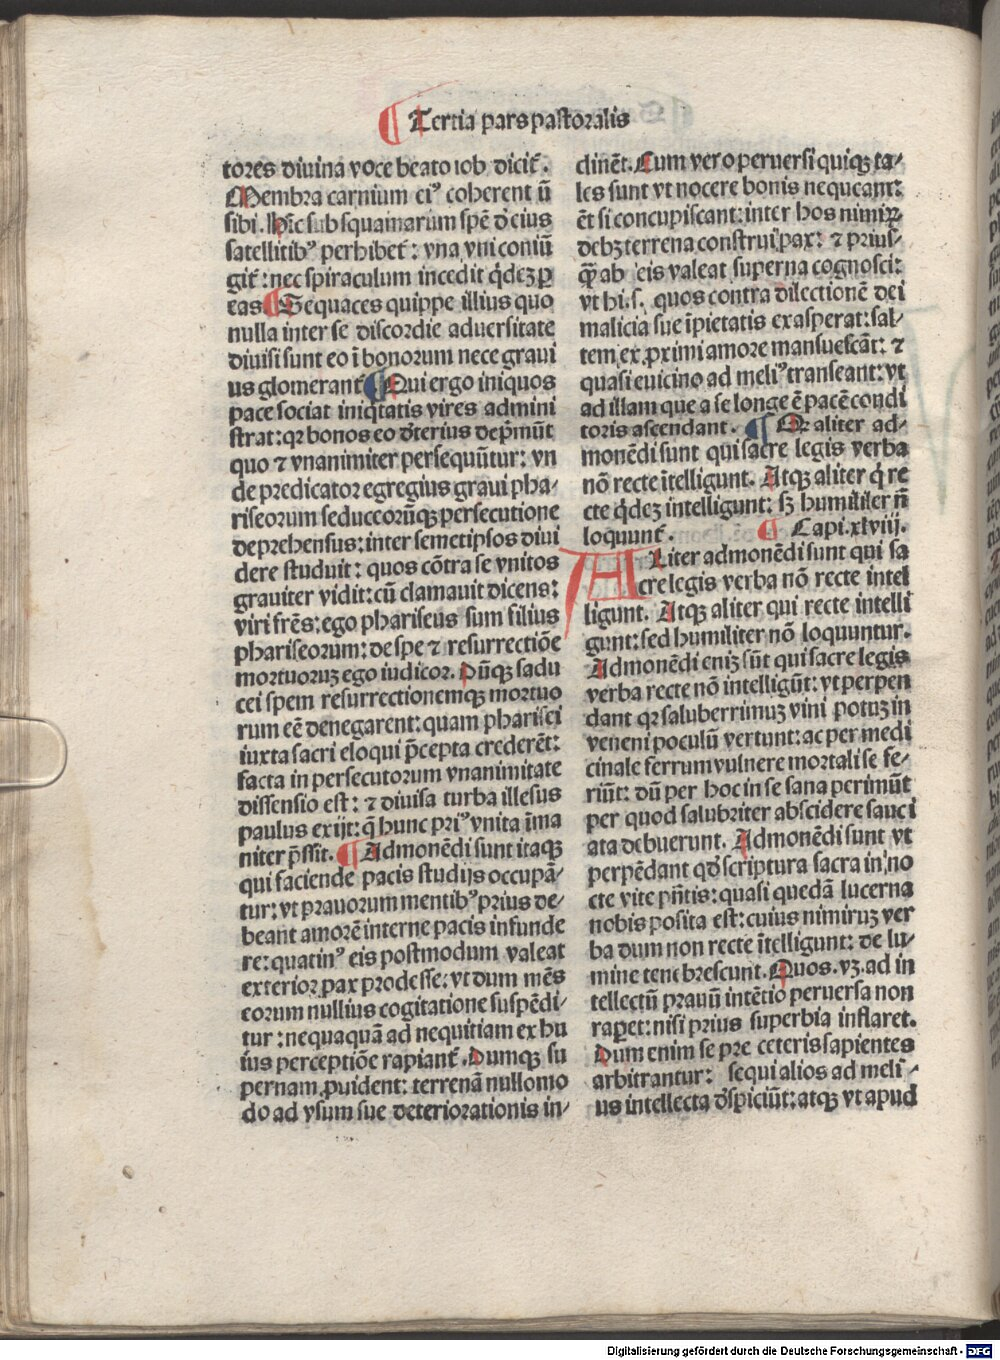 ¶ Tertia pars pastoralis
tores diuina voce beato iob dicit̄.
Membra carnium eiꝰ coherent ū
sibi. Hīc sub squamarum spē d̄ eius
satellitibꝰ perhibet̄ : vna vni coniū
git̄ : nec spiraculum incedit q̇dez ꝑ
eas ¶ Sequaces quippe illius quo
nulla inter se discordie aduersitate
diuisi sunt eo ī bonorum nece graui
us glomerant̄ ¶ Qui ergo iniquos
pace sociat iniq̇tatis vires admini
strat : qꝛ bonos eo d̄terius dep̄mūt
quo ⁊ vnanimiter persequūtur : vn
de predicator egregius graui pha⸗
riseorum seduceorūqꝫ persecutione
deprehensus : inter semetipsos diui
dere studuit : quos cōtra se vnitos
grauiter vidit : cū clamauit dicens :
viri frēs : ego phariseus sum filius
phariseorum : de spe ⁊ resurrectiōe
mortuoruꝫ ego iudicor. Dūqꝫ sadu
cei spem resurrectionemqꝫ mortuo
rum eē denegarent : quam pharisei
iuxta sacri eloqui p̄cepta crederēt :
facta in persecutorum vnanimitate
dissensio est : ⁊ diuisa turba illesus
paulus exijt : q̄ hunc priꝰ vnita īma
niter p̄ssit. ¶ Admonēdi sunt itaqꝫ
qui faciende pacis studijs occupā⸗
tur : vt prauorum mentibꝰ prius de⸗
beant amorē interne pacis infunde
re : quatinꝰ eis postmodum valeat
exterior pax prodesse : vt dum mēs
eorum nullius cogitatione suspēdi⸗
tur : nequaquā ad nequitiam ex hu
ius perceptiōe rapiant̄. Dumqꝫ su
pernam ꝓuident : terrenā nullomo
do ad vsum sue deteriorationis in⸗
clinēt. Cum vero peruersi quiqꝫ ta⸗
les sunt vt nocere bonis nequeant :
ēt si concupiscant : inter hos nimiꝝ
debꝫ terrena construi pax : ⁊ prius⸗
q̄ꝫ ab eis valeat superna cognosci :
vt hi .s. quos contra dilectionē dei
malicia sue īpietatis exasperat : sal⸗
tem ex ꝓximi amore mansuescāt : ⁊
quasi euicino ad meliꝰ transeant : vt
ad illam que a se longe ē pacē condi
toris ascendant. ¶ Qꝛ aliter ad⸗
monēdi sunt qui sacre legis verba
nō recte ītelligunt. Atqꝫ aliter q̇ re
cte q̇dez intelligunt : sꝫ humiliter n̄
loquunt̄. ¶ Capi. xlviij.
ALiter admonēdi sunt qui sa
cre legis verba nō recte intel
ligunt. Atqꝫ aliter qui recte intelli
gunt : sed humiliter nō loquuntur.
Admonēdi eniꝫ sūt qui sacre legis
verba recte nō intelligūt : vt perpen
dant qꝛ saluberrimuꝫ vini potuꝫ in
veneni poculū vertunt : ac per medi
cinale ferrum vulnere mortali se fe⸗
riūt : dū per hoc in se sana perimūt
per quod salubriter abscidere sauci
ata debuerunt. Admonēdi sunt vt
perpēdant qd̄ scriptura sacra in no
cte vite pn̄tis : quasi quedā lucerna
nobis posita est : cuius nimiruꝫ ver
ba dum non recte ītelligunt : de lu⸗
mine tenebrescunt. Quos. vꝫ. ad in
tellectū prauū intētio peruersa non
raꝑet : nisi prius superbia inflaret.
Dum enim se pre ceteris sapientes
arbitrantur : sequi alios ad meli⸗
us intellecta d̄spiciūt : atqꝫ vt apud
Digitalisierung gefördert durch die Deutsche Forschungsgemeinschaft - DFG